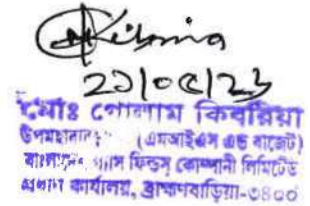 Kibria
২১/০৫/২৩
মোঃ গোলাম কিবরিয়া
উপমহাব্যব (এমআইএস এন্ড বাজেট)
বাংলাদেশ গ্যাস ফিল্ডস্ কোম্পানী লিমিটেড
প্রধান কার্যালয়, ব্রাহ্মণবাড়িয়া-৩৪০০